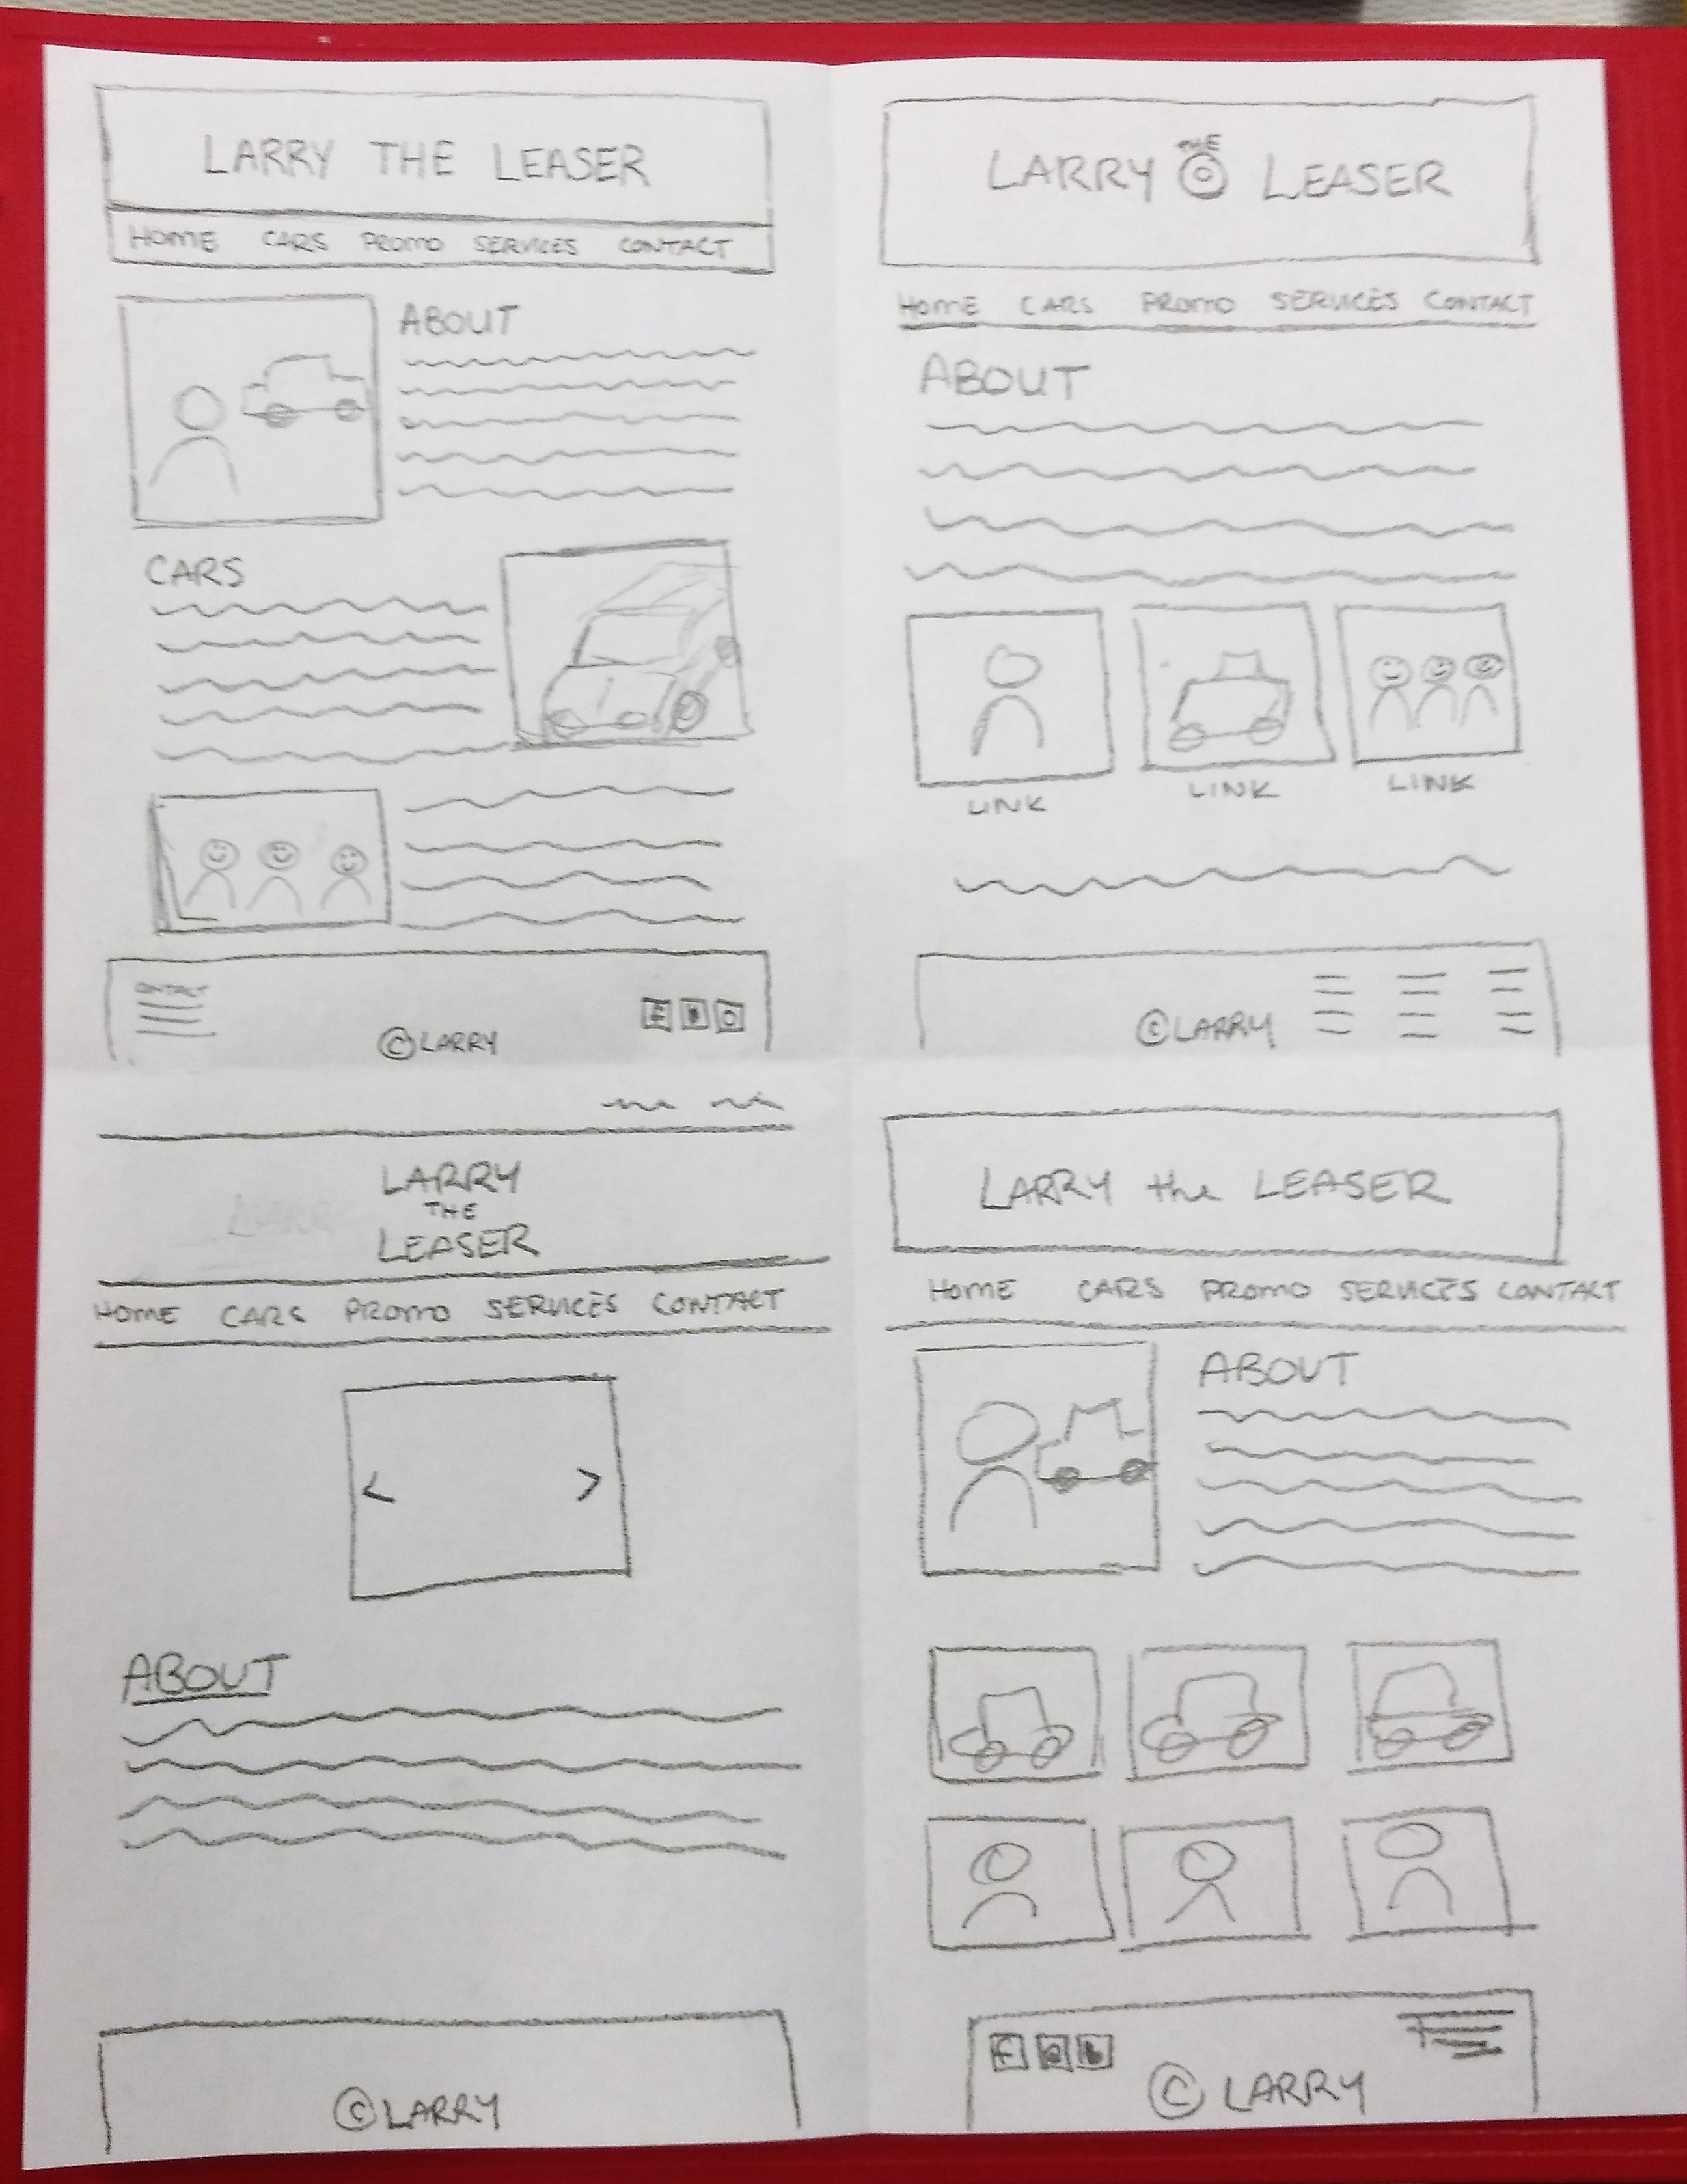 LARRY THE LEASER
HOME CARS PROMO SERVICES CONTACT
ABOUT
CARS
CONTACT
© LARRY
LARRY THE LEASER
HOME CARS PROMO SERVICES CONTACT
ABOUT
LINK LINK LINK
© LARRY
LARRY
THE
LEASER
HOME CARS PROMO SERVICES CONTACT
< >
ABOUT
© LARRY
LARRY the LEASER
HOME CARS PROMO SERVICES CONTACT
ABOUT
© LARRY